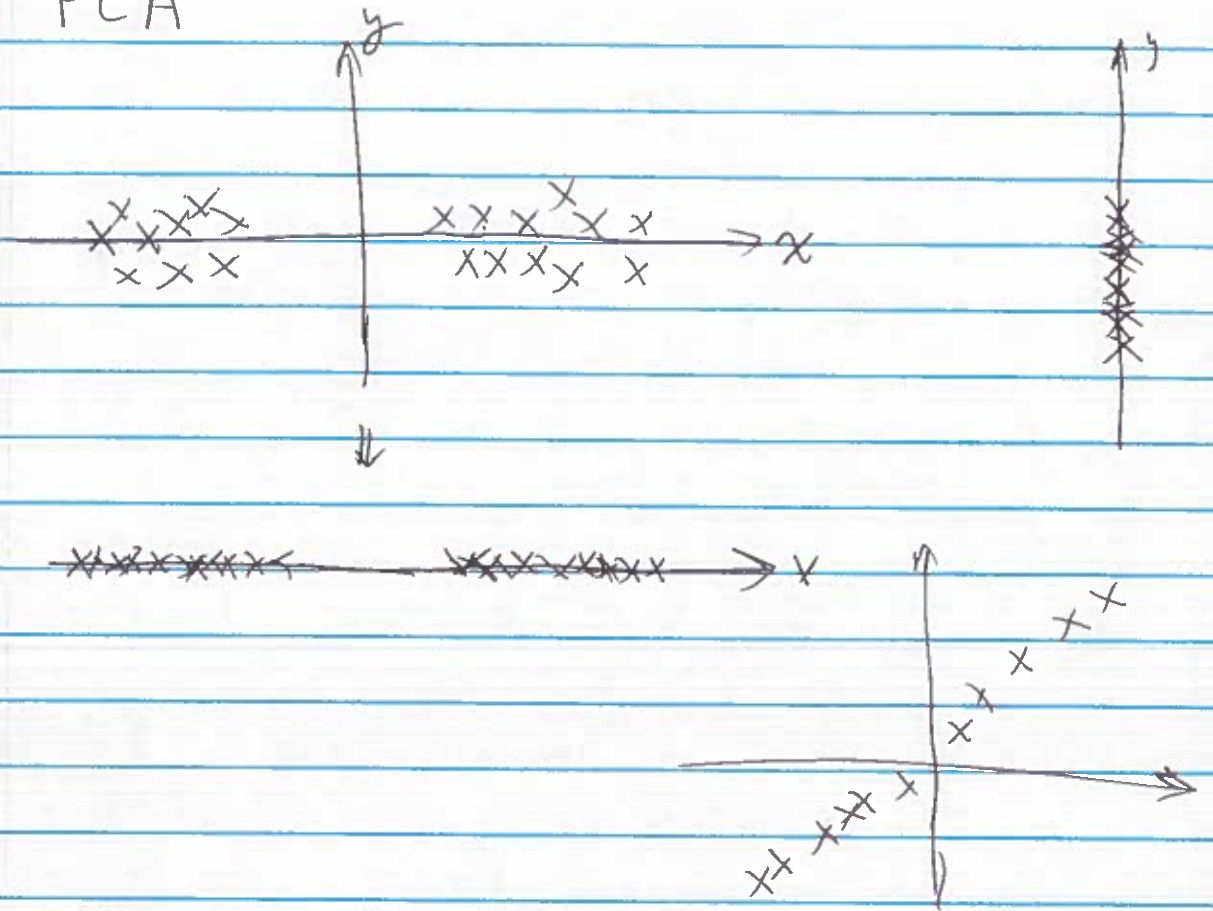 PCA
y
y
x
x